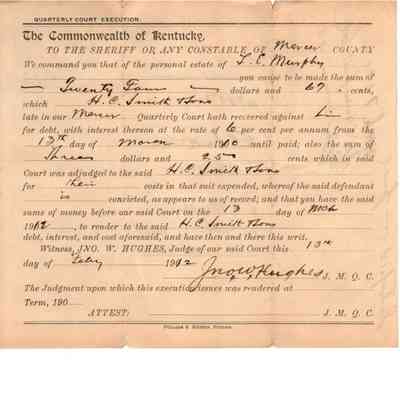 QUARTERLY COURT EXECUTION.
The Commonwealth of Kentucky,
TO THE SHERIFF OR ANY CONSTABLE OF Mercer COUNTY
We command you that of the personal estate of T. C. Murphy
you cause to be made the sum of
Twenty Four dollars and 67 cents,
which H. C. Smith & Sons
late in our Mercer Quarterly Court hath recovered against him
for debt, with interest thereon at the rate of 6 per cent per annum from the
13th day of March 1910 until paid; also the sum of
Three dollars and 25 cents which in said
Court was adjudged to the said H. C. Smith & Sons
for their costs in that suit expended, whereof the said defendant
is convicted, as appears to us of record; and that you have the said
sums of money before our said Court on the 13 day of Mch
1912, to render to the said H. C. Smith & Sons
debt, interest, and cost aforesaid, and have then and there this writ.
Witness, JNO. W. HUGHES, Judge of our said Court this 13th
day of Feby 1912 Jno W Hughes J. M. Q. C.
The Judgment upon which this execution issues was rendered at
Term, 190
ATTEST: J. M. Q. C.